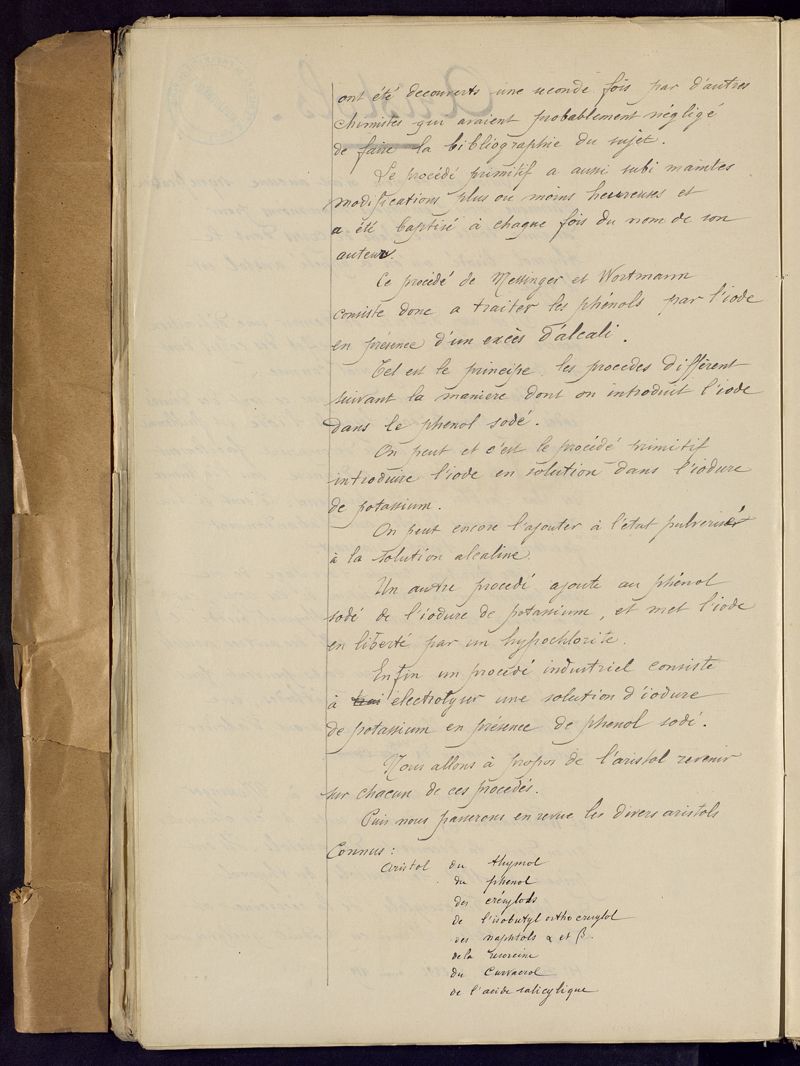 ont été decouverts une seconde fois par d'autres
chimistes qui avaient probablement négligé
de faire la bibliographie du sujet.
Le procédé primitif a aussi subi maintes
modifications plus ou moins heureuses et
a été baptisé à chaque fois du nom de son
auteur.
Ce procédé de Messinger et Wortmann
consiste donc a traiter les phénols par l'iode
en présence d'un excès d'alcali.
Tel est le principe. les procedes diffèrent
suivant la maniere dont on introduit l'iode
dans le phenol sodé.
On peut et c'est le procédé primitif
introduire l'iode en solution dans l'iodure
de potassium.
On peut encore l'ajouter à l'état pulverisé
à la solution alcaline.
Un autre procedé ajoute au phénol
sodé de l'iodure de potassium, et met l'iode
en liberté par un hypochlorite.
Enfin un procédé industriel consiste
à électrolyser une solution d'iodure
de potassium en présence de phenol sodé.
Nous allons à propos de l'aristol revenir
sur chacun de ces procedés.
Puis nous passerons en revue les divers aristols
Connus :
Aristol du thymol
du phenol
des crésylols
de l'isobutyl ortho cresylol
des naphtols α et β.
de la resorcine
du Carvacrol
de l'acide salicylique
Aristols.